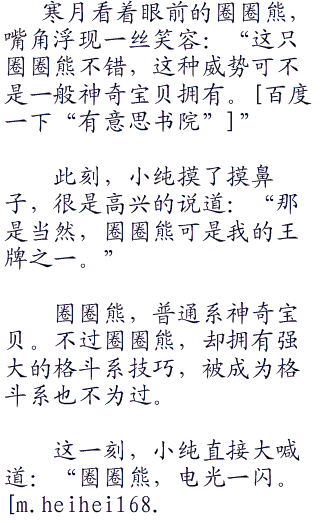 寒月看着眼前的圈圈熊，
嘴角浮现一丝笑容：“这只
圈圈熊不错，这种威势可不
是一般神奇宝贝拥有。[百度
一下“有意思书院”]”
此刻，小纯摸了摸鼻
子，很是高兴的说道：“那
是当然，圈圈熊可是我的王
牌之一。”
圈圈熊，普通系神奇宝
贝。不过圈圈熊，却拥有强
大的格斗系技巧，被成为格
斗系也不为过。
这一刻，小纯直接大喊
道：“圈圈熊，电光一闪。
[m.heihei168.